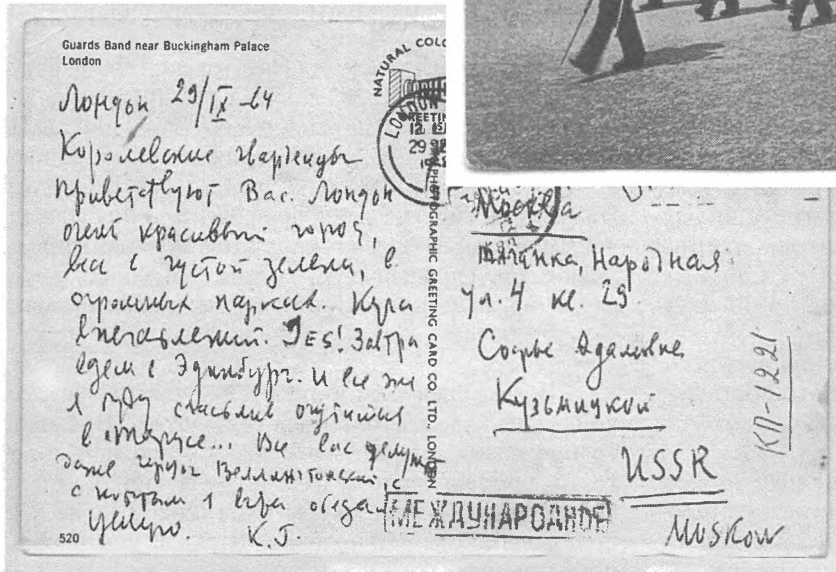 Guards Band near Buckingham Palace
London
Лондон 29/IX-64
Королевские гвардейцы
приветствуют Вас. Лондон
очень красивый город,
весь в густой зелени, в
огромных парках. Куча
впечатлений. YES! Завтра
едем в Эдинбург. И все же
я буду счастлив очутиться
в Тарусе... Все вас целуют
даже герцог Веллингтонский, с
которым я вчера обедал
К.П.
520
NATURAL COL
GREETIN
LONDON
29 SE
PHOTOGRAPHIC GREETING CARD CO. LTD., LONDON
Москва
Таганка, Народная
ул. 4 кв. 29
Софье Адамовне
Кузьмицкой
USSR
MOSKOW
МЕЖДУНАРОДНОЕ
КП-1221